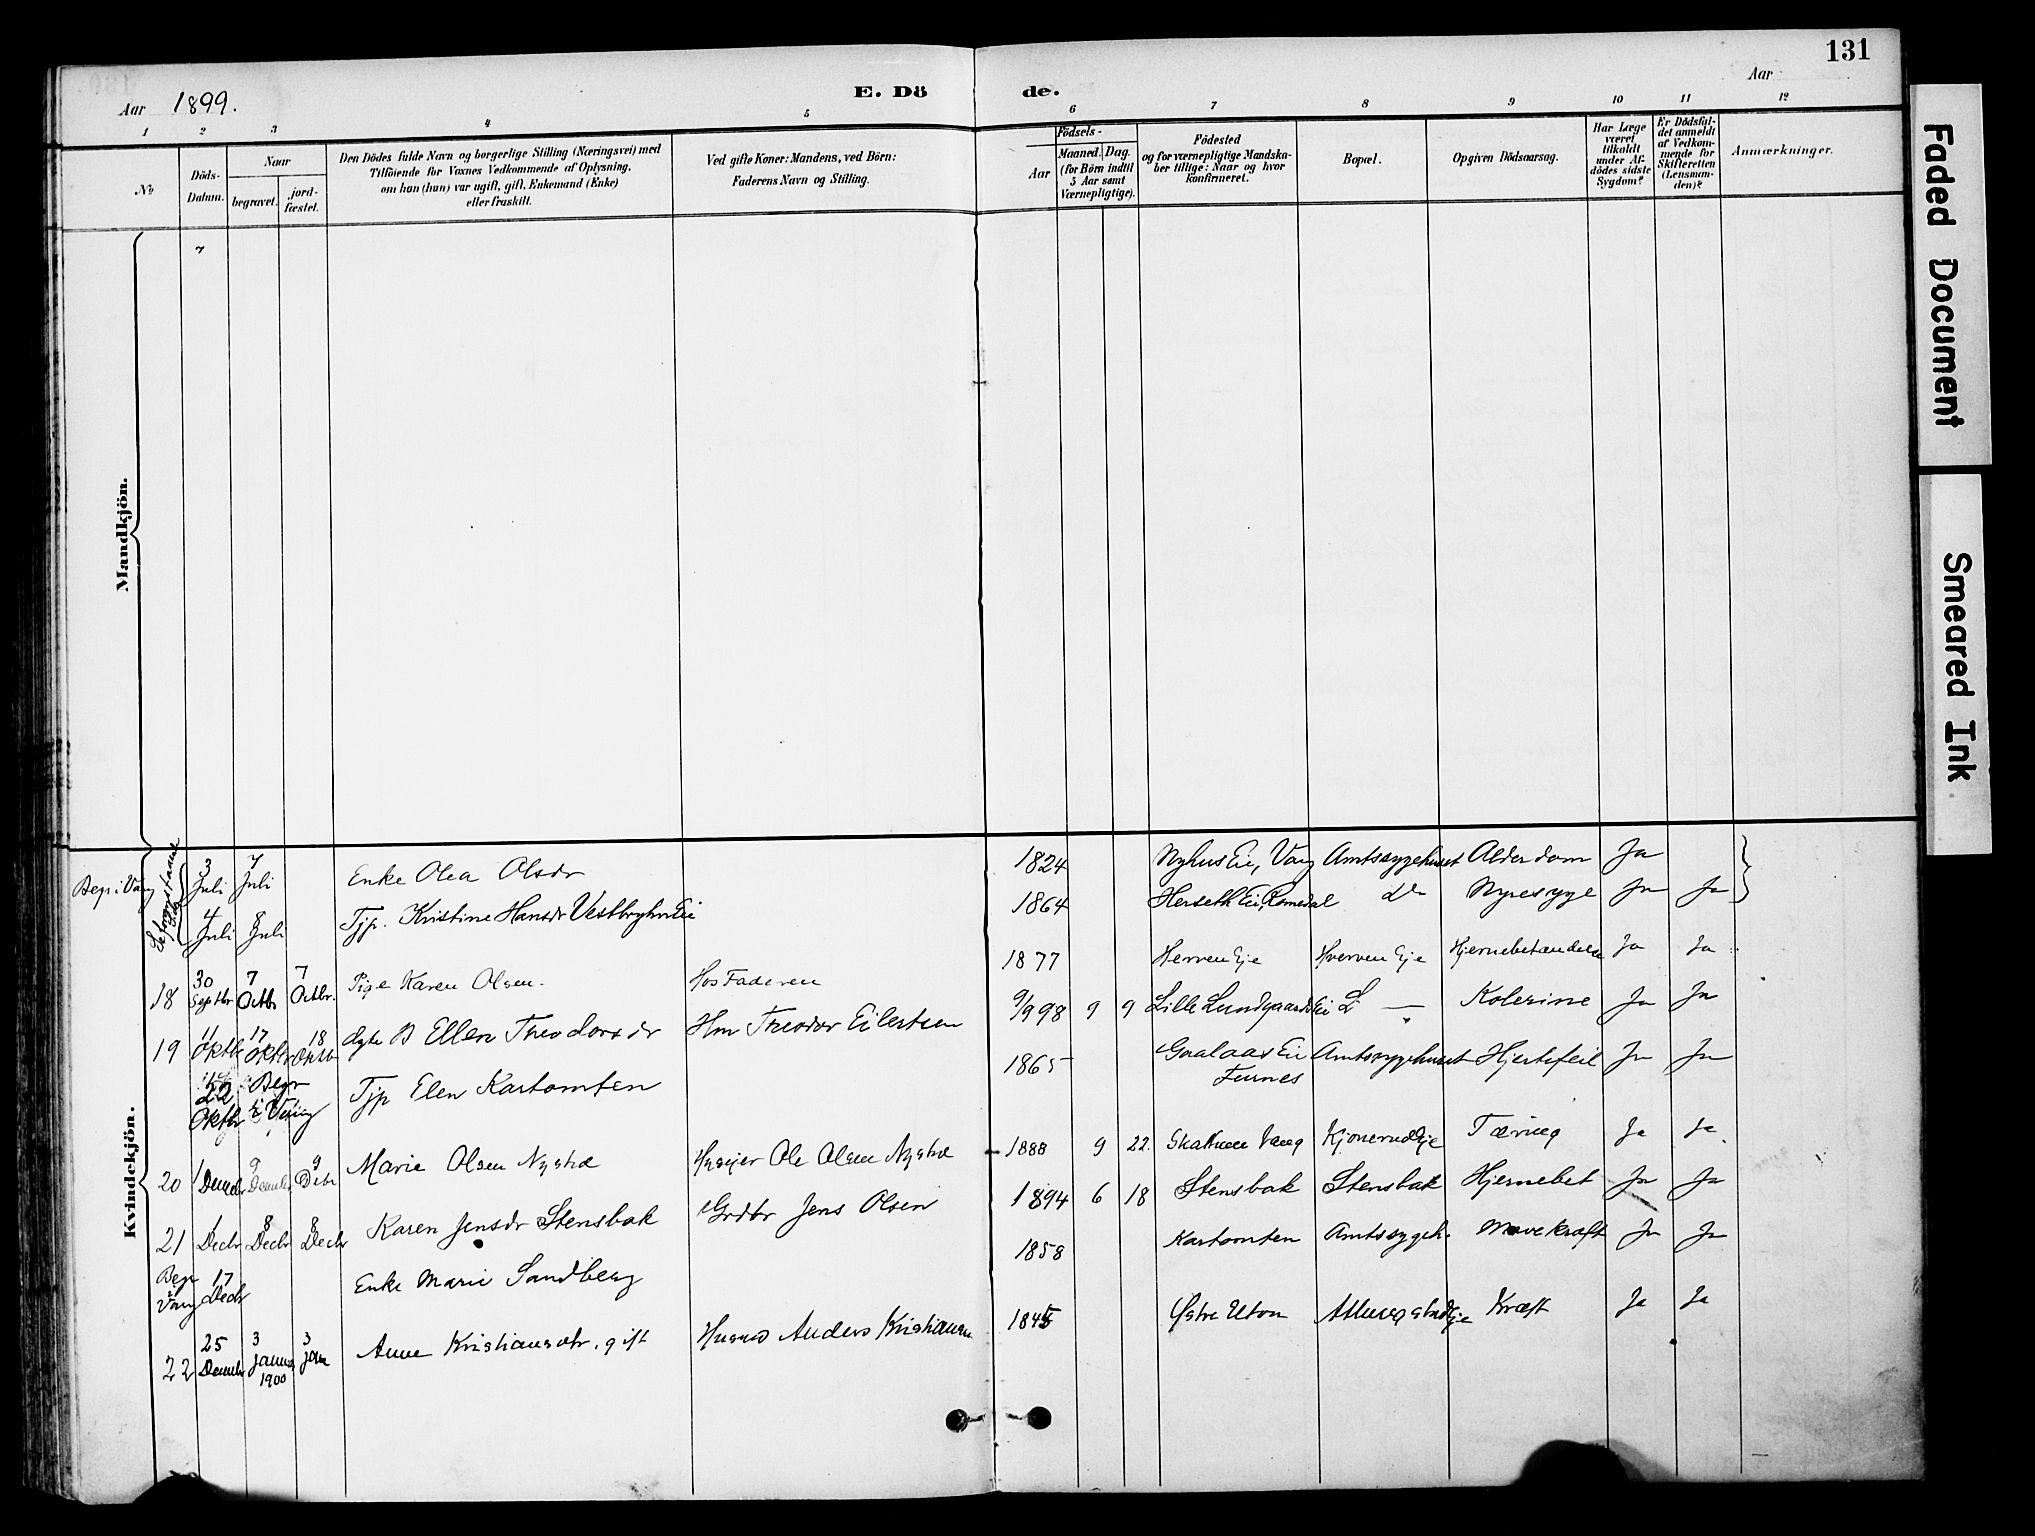 131
Aar 1899.
E. Dö de.
Aar
1 2 3 4 5 6 7 8 9 10 11 12
No
Döds-
Datum.
Naar
begravet.
jord-
fæstet.
Den Dödes fulde Navn og borgerlige Stilling (Næringsvei) med
Tilföiende for Voxnes Vedkommende af Oplysning,
om han (hun) var ugift, gift, Enkemand (Enke)
eller fraskilt.
Ved gifte Koner: Mandens, ved Börn:
Faderens Navn og Stilling.
Födsels-
Aar
Maaned. Dag.
(for Börn indtil
5 Aar samt
Værnepligtige).
Födested
og for værnepligtige Mandska-
ber tillige: Naar og hvor
konfirmeret.
Bopæl.
Opgiven Dödsaarsag.
Har Læge
været
tilkaldt
under Af-
dödes sidste
Sygdom?
Er Dödsfal-
det anmeldt
af Vedkom-
mende for
Skifteretten
(Lensman-
den)?
Anmærkninger.
Mandkjön.
Kvindekjön.
Begr i Vang 3 Juli 7 Juli Enke Olea Olsdr 1824 Nyhus Eie, Vang Amtssygehuset Alderdom Ja
4 Juli 8 Juli Tjp. Kristine Hansdr Vestbyhvi Eie 1864 Herseth Ei, Romedal do Nyresyge Ja Ja
18 30 Septbr 7 Octbr 7 Octbr. Pige Karen Olsen. Hos Faderen 1877 Herven Eje Hverven Eje Hjernebetændelse Ja Ja
19 11 Oktbr 17 Oktbr 18 Oktbr dgte B Ellen Theodorsdr Hm Theodor Eilertsen 9/9 98 9 9 Lille Lundgaards Ei L — Kolerine Ja Ja
22 Oktbr Begr i Vang Tjp Elen Kartomten 1865 Gaalaas Ei Furnes Amtssygehuset Hjertefeil Ja Ja
20 1 Decembr 9 Decembr 9 Debr Marie Olsen Nystue Huseier Ole Olsen Nystue 1888 9 22. Skattum Vang Kjonerud Eje Tæring Ja Ja.
21 1 Decbr 8 Decbr 8 Decbr Karen Jensdr Stensbak Grdbr Jens Olsen 1894 6 18 Stensbak Stensbak Hjernebet Ja Ja
Begr i Vang 17 Decbr Enke Marie Sandberg 1858 Kartomten Amtssygeh. Mavekræft Ja Ja
22 25 Decembr 3 Januar 1900 3 Jan Anne Kristiansdtr. gift Husmd Anders Kristiansen 1845 Östre Elton Kræft Ja Ja
Faded Document
Smeared Ink